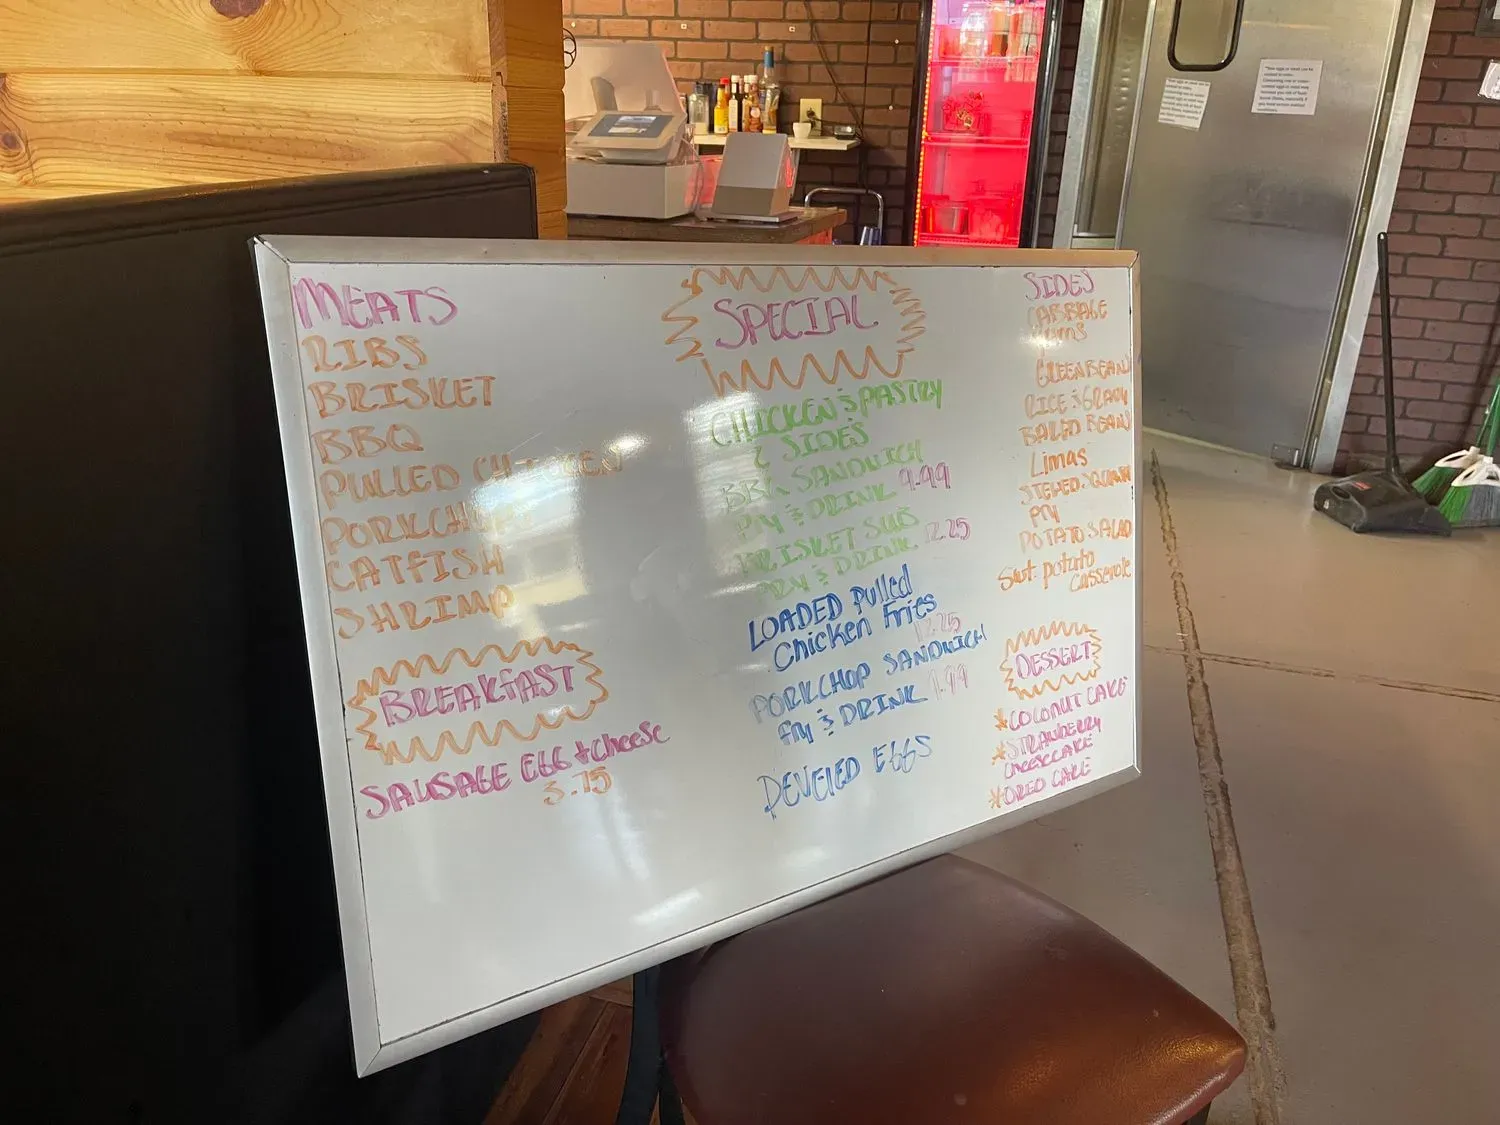 MEATS
RIBS
BRISKET
BBQ
PULLED CHICKEN
PORKCHOPS
CATFISH
SHRIMP
BREAKFAST
SAUSAGE EGG & cheese
3.75
SPECIAL
CHICKEN & PASTRY
2 SIDES
BBQ SANDWICH
FRY & DRINK 9.99
BRISKET SUB
FRY & DRINK 12.25
LOADED Pulled
Chicken Fries
12.25
PORKCHOP SANDWICH
fry & DRINK
DEVEIED EGGS
SIDES
CABBAGE
GREEN BEAN
RICE & GRAVY
BAKED BEAN
Limas
STEWED
fry
POTATO SALAD
Swt. potato
Casserole
DESSERT
*COCONUT CAKE
*STRAWBERRY
CHEESECAKE
*OREO CAKE